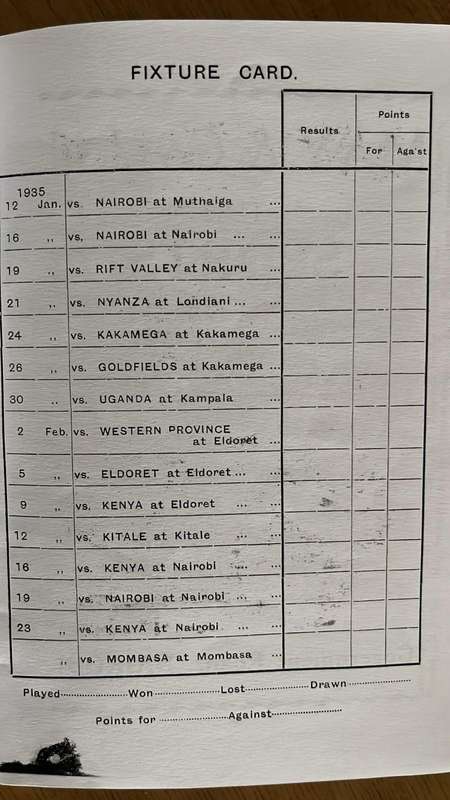 FIXTURE CARD.
Results
Points
For Aga'st
1935
12 Jan. vs. NAIROBI at Muthaiga ...
16 ,, vs, NAIROBI at Nairobi ... ...
19 ,, vs. RIFT VALLEY at Nakuru ...
21 ,, vs. NYANZA at Londiani ... ...
24 ,, vs. KAKAMEGA at Kakamega ...
26 ,, vs. GOLDFIELDS at Kakamega ...
30 ,, vs. UGANDA at Kampala ...
2 Feb. vs. WESTERN PROVINCE
at Eldoret ...
5 ,, vs. ELDORET at Eldoret ... ...
9 ,, vs. KENYA at Eldoret ... ...
12 ,, vs. KITALE at Kitale ... ...
16 ,, vs. KENYA at Nairobi ... ...
19 ,, vs. NAIROBI at Nairobi ... ...
23 ,, vs. KENYA at Nairobi ... ...
,, vs. MOMBASA at Mombasa ...
Played..................Won......................Lost.....................Drawn....................
Points for ......................Against......................